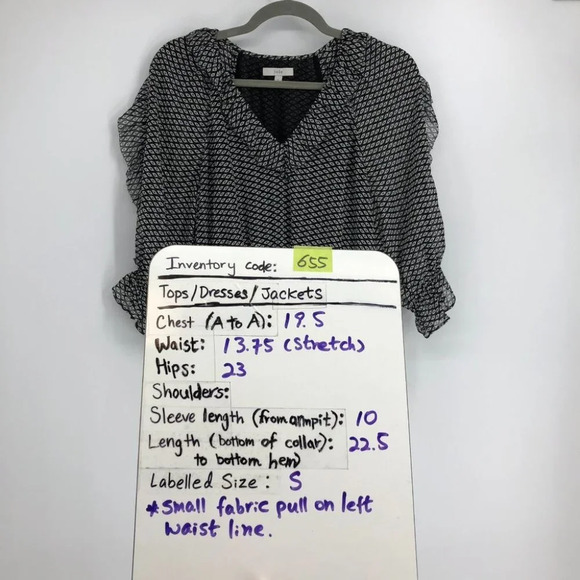 Inventory code: 655
Tops/Dresses/Jackets
Chest (A to A): 19.5
Waist: 13.75 (Stretch)
Hips: 23
Shoulders:
Sleeve length (from armpit): 10
Length (bottom of collar): 22.5
to bottom hem)
Labelled Size: S
*Small fabric pull on left
waist line.